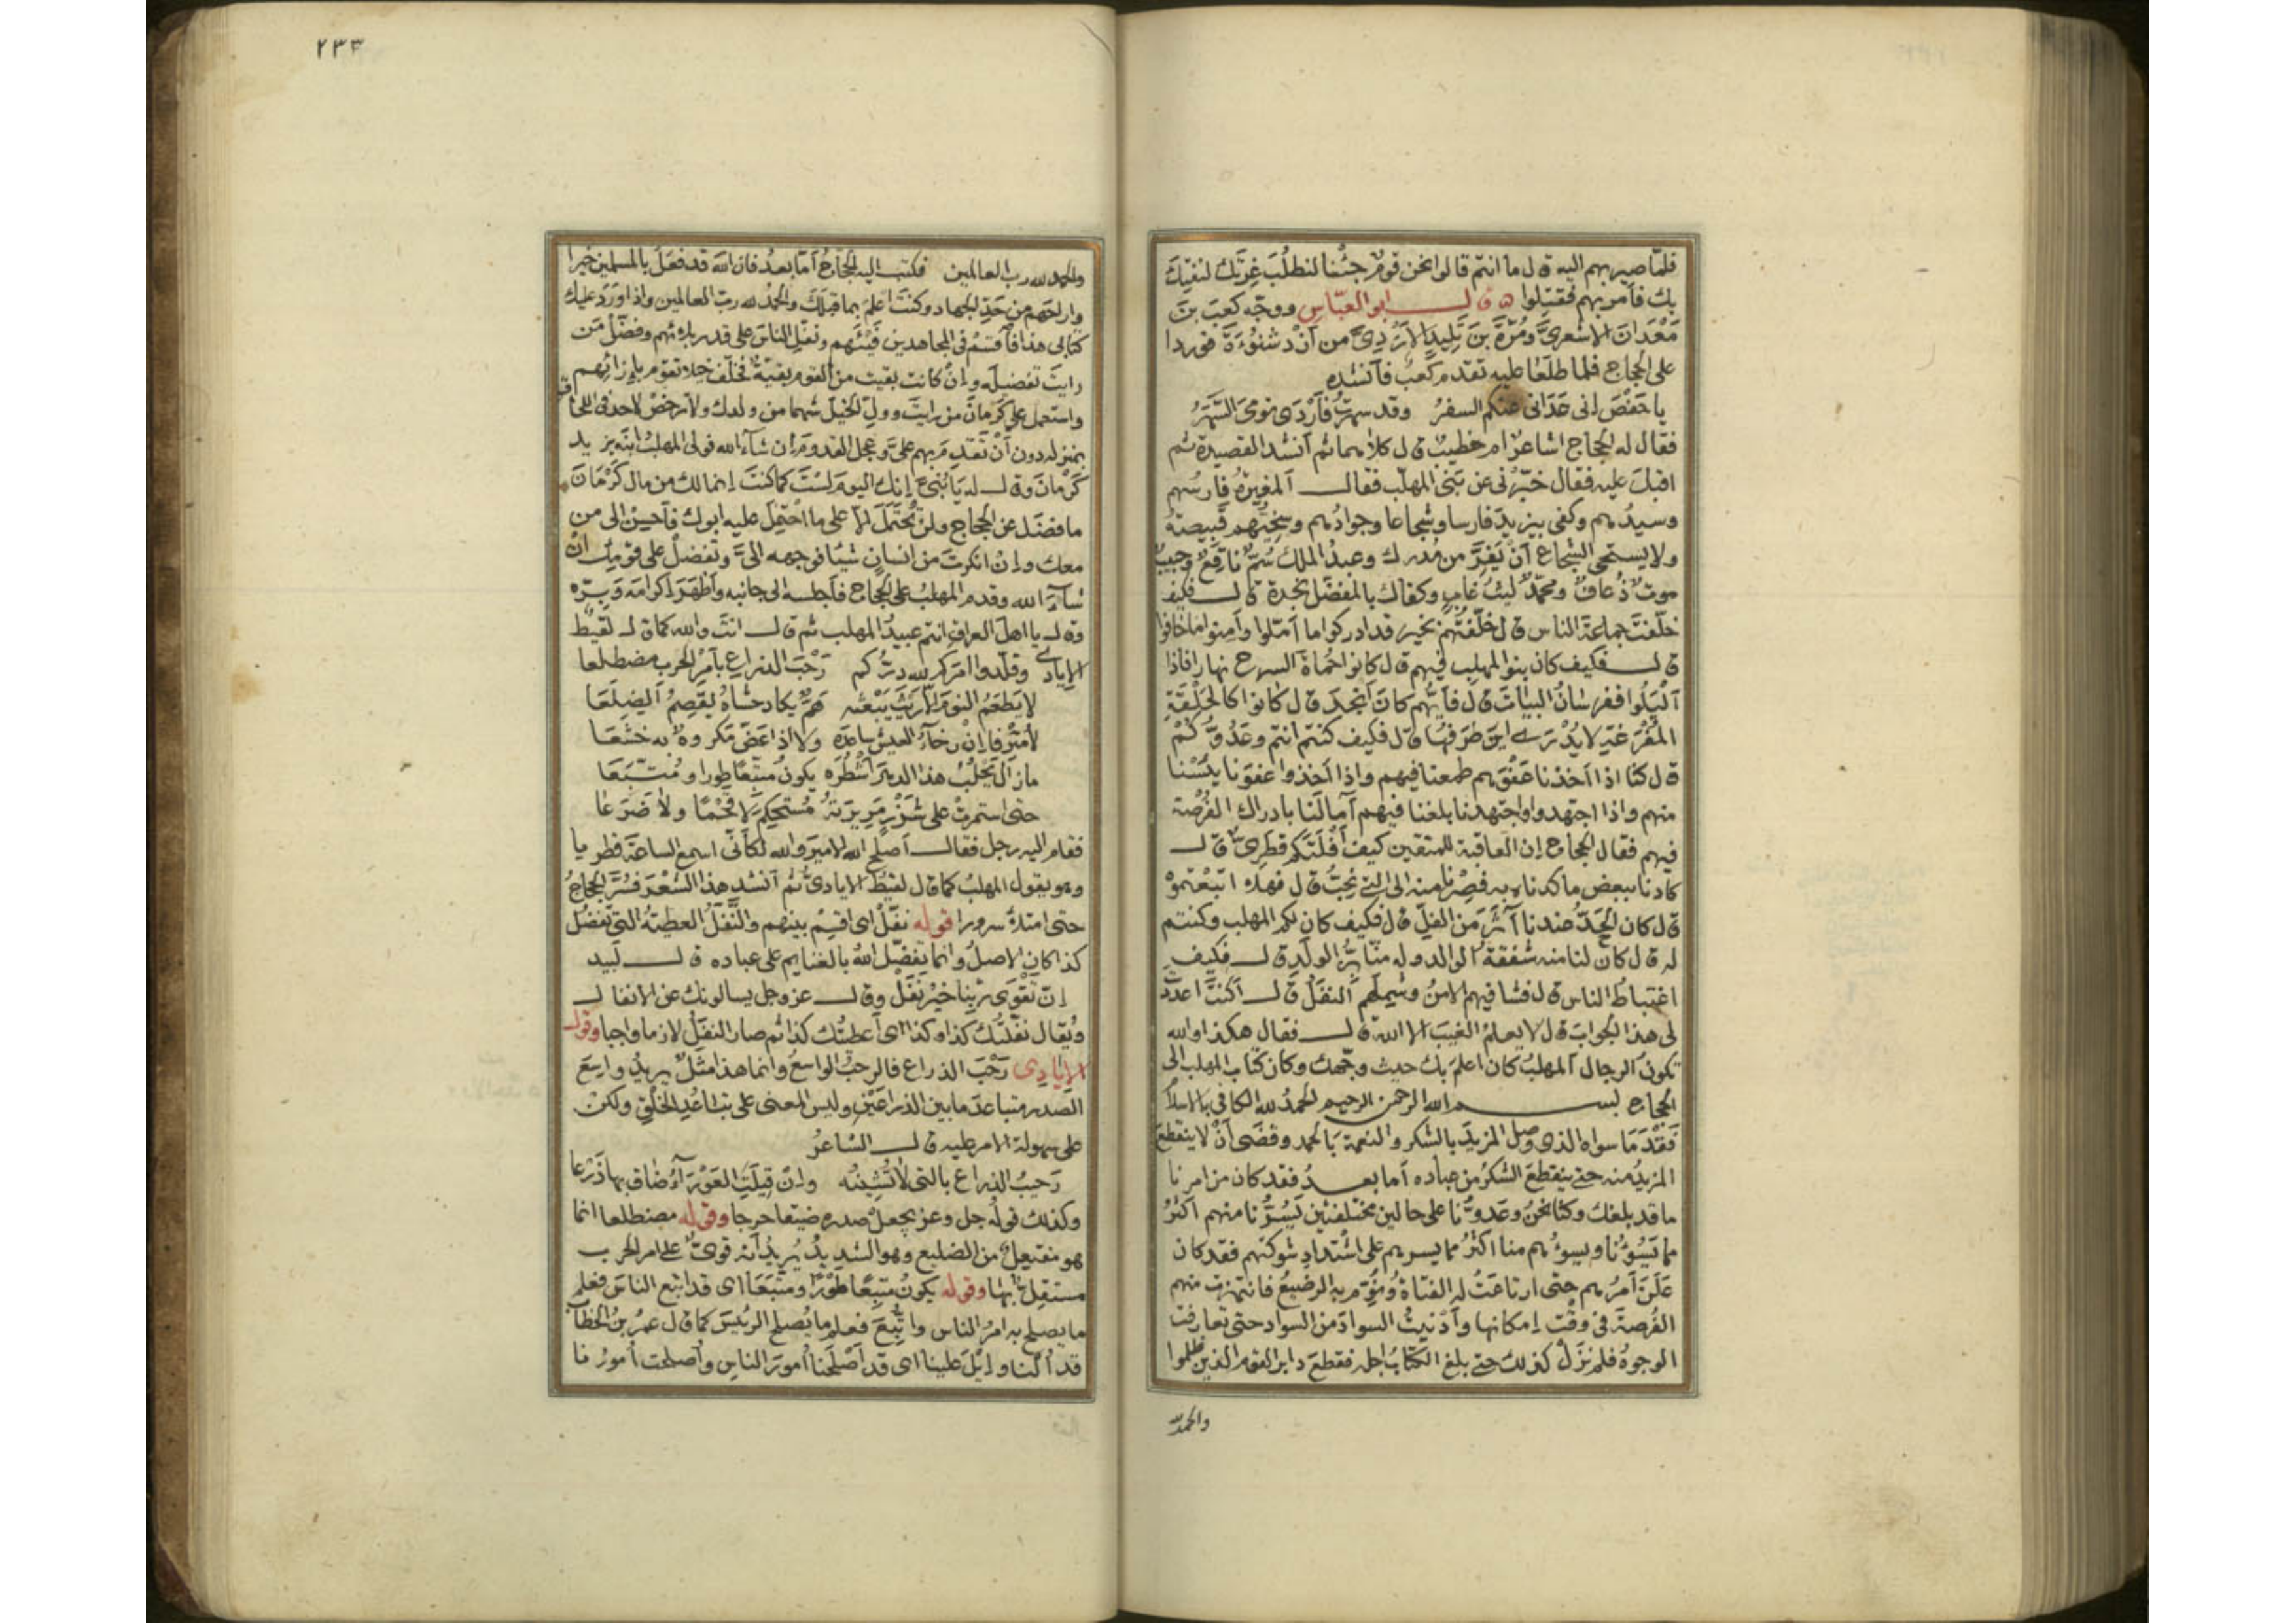 فلمّا صير بهم اليه قال ما انتم قالوا نحن قومٌ جئنا لنطلُبَ غِرّتك لنفتِكَ
بك فأمر بهم فقُتِلوا ۵ قال ابو العبّاس ووجّه كعبَ بنَ
مَعْدَانَ الاشعريَّ ومُرّةَ بنَ تليدٍ الازديّ من أزد شنُوءَةَ فوردا
على الحجاج فلما طلعا عليه تقدم كعبٌ فأنشده
يا حَفْصَ انى عَدَانى عنكم السفرُ وقد سهرتُ فأرْدَى نومىَ السَّهَرُ
فقال له الحجاج اشاعرٌ ام خطيبٌ قال كلاهما ثم أنشد القصيدة ثم
اقبلَ عليه فقال خبّرْنى عن بَنى المهلّب فقال ألمغيرةُ فارسُهم
وسيدُهم وكفى بيزيدَ فارسا وشجاعا وجوادُهم وسخيّهم قَبيصةُ
ولا يستحيى الشجاع أنْ يَفِرَّ من مُدرك وعبدُ الملك سُمٌّ ناقعٌ وحبيبٌ
موتٌ ذُعافٌ ومحمّدٌ ليثُ غابٍ وكفاك بالمفضّل نجدة قال فكيف
خلّفتَ جماعةَ الناس قال خلّفتُهم بخير قد ادركوا ما أمّلوا وأمِنوا ما خافوا
قال فكيف كان بنوا المهلب فيهم قال كانوا حُماةَ السرح نهارا فاذا
أليَلُوا ففرسانُ البيات قال فأيُّهم كان أنجدَ قال كانوا كالحَلْقَةِ
المُفْرَغةِ لا يُدْرَى اين طَرَفُها قال فكيف كنتم انتم وعَدُوُّكم
قال كنا اذا اخذنا عَفْوَهم طمعنا فيهم واذا أخذوا عفونا يئسْنا
منهم واذا اجتهدوا واجتهدنا بلغنا فيهم آمالَنا بادراك الفُرْصة
فيهم فقال الحجاج إن العاقبة للمتقين كيف أفْلَتَكم قطَرِىٌّ قال
كادنا ببعض ما كدناه به فصِرْنا منه الى التى نُحِبُّ قال فهلا اتبعتموْه
قال كان الحَدُّ عندنا آثَرَ من الفلّ قال فكيف كان لكم المهلب وكنتم
له قال كان لنا منه شفقةُ الوالد وله منّا بِرُّ الولَد قال فكيف
اغتباطُ الناس قال فشا فيهم الامنُ وشمِلَهم النفَلُ قال أكنتَ اعددتَ
لى هذا الجوابَ قال لا يعلمُ الغيبَ الا الله قال فقال هكذا والله
تكونُ الرجال المهلبُ كان اعلمَ بك حيث وجّهك وكان كتاب المهلب الى
الحجاج بسم الله الرحمن الرحيم الحمدُ لله الكافى بالاسلام
فَقْدَ مَا سواه الذى وصل المزيدَ بالشكر والنعمة بالحمد وقضَى أنْ لا ينقطعَ
المزيدُ منه حتى ينقطعَ الشكرُ من عباده أما بعدُ فقد كان من امرنا
ما قد بلغك وكنا نحنُ وعدوُّنا على حالين مختلفتين يَسُرُّنا منهم اكثرُ
مما يَسُوءُنا ويسوءُهم منا اكثرُ مما يسرهم على اشتدادِ شوكتهم فقد كان
عَلَنَ أمرُهم حتى ارتاعَتْ له الفتاةُ ونُوِّم به الرضيعُ فانتهزت منهم
الفُرصةَ فى وقت إمكانها وأدْنيتُ السوادَ من السواد حتى تعارفت
الوجوهُ فلم نزَلْ كذلك حتى بلغ الكتابُ اجله فقطعَ دابر القوم الذين ظلموا
والحمد لله
٢٣٣
والحمد لله رب العالمين فكتب اليه الحجاجُ أمّا بعدُ فان الله قد فعَلَ بالمسلمين خيرا
وأراحَهم من حَدِّ الجهاد وكنتَ اعلمَ بما قِبَلَكَ والحمدُ لله ربّ العالمين واذا ورَدَ عليك
كتابى هذا فأقسمْ فى المجاهدين فَيْئَهم ونفّلِ الناسَ على قدر بلائهم وفضّلْ مَن
رايتَ تفضيلَه وإنْ كانت بقيت من القوم بقيّةٌ فخلّفْ خيلا تقوم بإزائهم
واستعمل على كَرْمانَ من رايتَ وولِّ الخيلَ شهما من ولدك ولا ترخّصْ لاحد فى اللحاق
بمنزله دون أنْ تَقدَمَ بهم علىّ وعجل القدومَ إن شآءَ الله فولى المهلبُ ابنَه يزيد
كَرْمانَ وقال له يَا بُنىَّ إنك اليومَ لسْتَ كما كنتَ إنما لك من مال كَرْمَانَ
ما فضَلَ عن الحجاج ولن تُحتَمَلَ الّا على ما احتُمِلَ عليه ابوك فأحسِنْ الى من
معك وإنْ انكرتَ من انسانٍ شيئا فوجهه الىّ وتفضلْ على قومك انْ
شآءَ الله وقدم المهلبُ على الحجاج فأجلسه الى جانبه وأظهَرَ إكرامَه وبِرّه
وقال يا اهلَ العراق انتم عبيدُ المهلب ثم قال انتَ والله كما قال لقيطٌ
الإيادى وقلّدوا امركم لله درّكم رَحْبَ الذراعِ بأمرِ الحرب مضطلَعا
لا يَطعَمُ النومَ الّا رَيْثَ يَبْعثُه هَمٌّ يكاد حشاهُ يقصِمُ الضِلَعا
لا مُترَفا إنْ رخآءُ العيش ساعدَه ولا اذا عَضّ مكروهٌ به خشعا
ما زال يَحْلُبُ هذا الدهرَ أشْطُرَه يكونُ متّبِعًا طورا ومُتّبَعَا
حتى استمرتْ على شَزْرٍ مَريرَتُه مُستحكِمَ لا قَحْمًا ولا ضَرَعا
فقام اليه رجل فقال أصلح الله الامير والله لكأنّى اسمع الساعة قطريا
وهو يقول المهلبُ كما قال لقيطٌ الايادىّ ثم أنشد هذا الشعْرَ فسُرّ الحجاجُ
حتى امتلأ سرورا قوله نفّلْ اى اقسِمْ بينهم والنَّفَلُ العطيّةُ التى تفضُلُ
كذا كان الاصلُ وانما تفضّل اللهُ بالغنايم على عباده قال لَبيد
إنّ تَقْوَى ربِّنا خيْرُ نفَلْ وقال عز وجل يسالونك عن الانفال
ويُقال نفّلتُك كذا وكذا اى أعطيتُك كذا ثم صار النفَلُ لازما واجبا وقول
الإيادى رَحْبَ الذراع فالرحبُ الواسعُ وانما هذا مثَلٌ يريدُ واسِعَ
الصّدر متباعدَ ما بين الذراعَيْنِ وليس المعنى على تباعُدِ الخَلْقِ ولكن
على سهولة الامر عليه قال الشاعرُ
رَحيبُ الذراع بالتى لا تَشِينُه وإنْ قِيلَتِ العَوْرآءُ ضاق بها ذَرْعا
وكذلك قولُه جل وعز يجعلْ صدره ضيقا حرجا وقوله مضطلعا انما
هو مفتعِلٌ من الضليع وهو الشديدُ يُريدُ أنه قوىٌّ على امر الحرب
مستقِلٌّ بها وقوله يكونُ متّبِعًا طَوْرًا ومتّبَعَا اى قد اتبع الناسَ فعلم
ما يصلح به امرُ الناس واتُّبِعَ فعلم ما يُصلح الرئيسَ كما قال عمرُ بنُ الخطاب
قد أُلنا وإيلَ علينا اى قد أصْلَحْنا أمورَ الناسِ وأصلحت أمورُنا